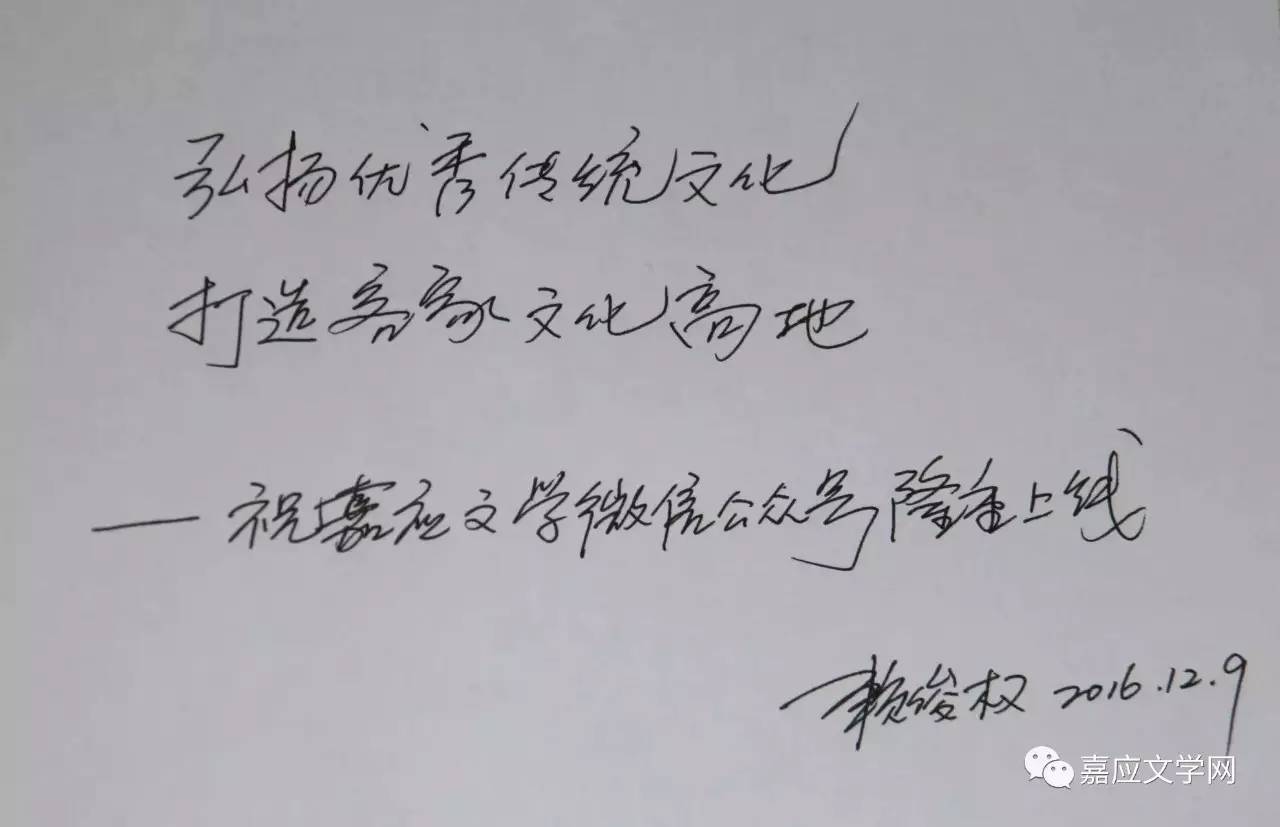 弘扬优秀传统文化
打造客家文化高地
——祝嘉应文学微信公众号隆重上线
赖俊权 2016.12.9
嘉应文学网